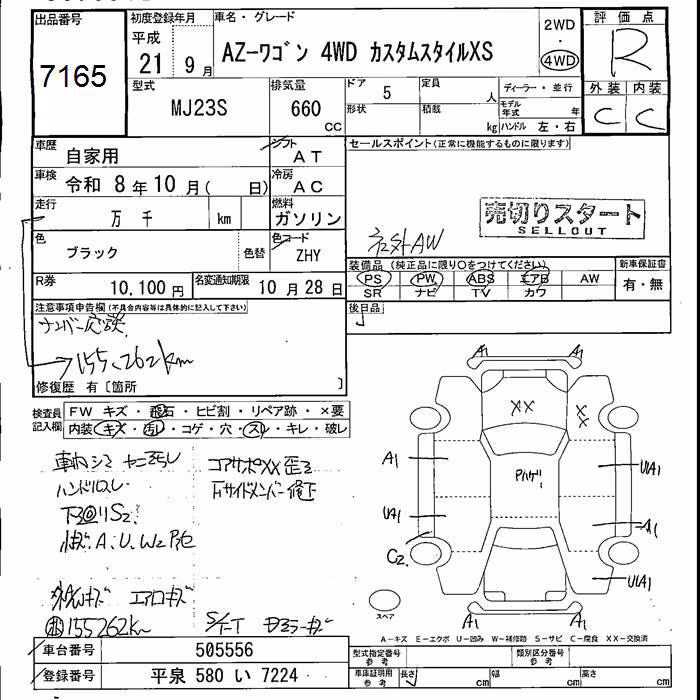 出品番号
7165
初度登録年月
平成
21 9 月
車名・グレード
AZ-ワゴン 4WD カスタムスタイルXS
2WD
・
4WD
評価点
R
型式
MJ23S
排気量
660
CC
ドア 5
形状
定員 人
積載 kg
ディーラー・並行
モデル年式 年
ハンドル 左・右
外装 内装
C C
車歴
自家用
シフト
AT
車検 令和 8年10月( 日)
冷房
AC
走行
万 千 km
燃料
ガソリン
色
ブラック
色替
色コード
ZHY
R券
10,100円
名変通知期限
10 月 28 日
セールスポイント(正常に機能するものに限ります)
売切りスタート
SELLOUT
社外AW
装備品 (純正品に限り○をつけてください)
PS PW ABS エアB AW
SR ナビ TV カワ
新車保証書
有・無
後日品
注意事項申告欄(不具合内容等は具体的に記入して下さい)
ナンバー応談
155,262km
修復歴 有〔箇所 〕
検査員
記入欄
FW キズ・飛石・ヒビ割・リペア跡・×要
内装 キズ・汚れ・コゲ・穴・スレ・キレ・破レ
車内シミ ヤニ汚レ
ハンドルスレ
コアサポXX歪ミ
155262km
車台番号 505556
登録番号 平泉 580 い 7224
A1
A1
XX
XX
A1
Pハゲ
UA1
UA1
A1
C2
UA1
A1
A1
スペア
A-キズ E-エクボ U-凹み W-補修跡 S-サビ C-腐食 XX-交換済
型式指定番号
参考
類別区分番号
参考
車庫証明用
参考
長さ cm
幅 cm
高さ cm